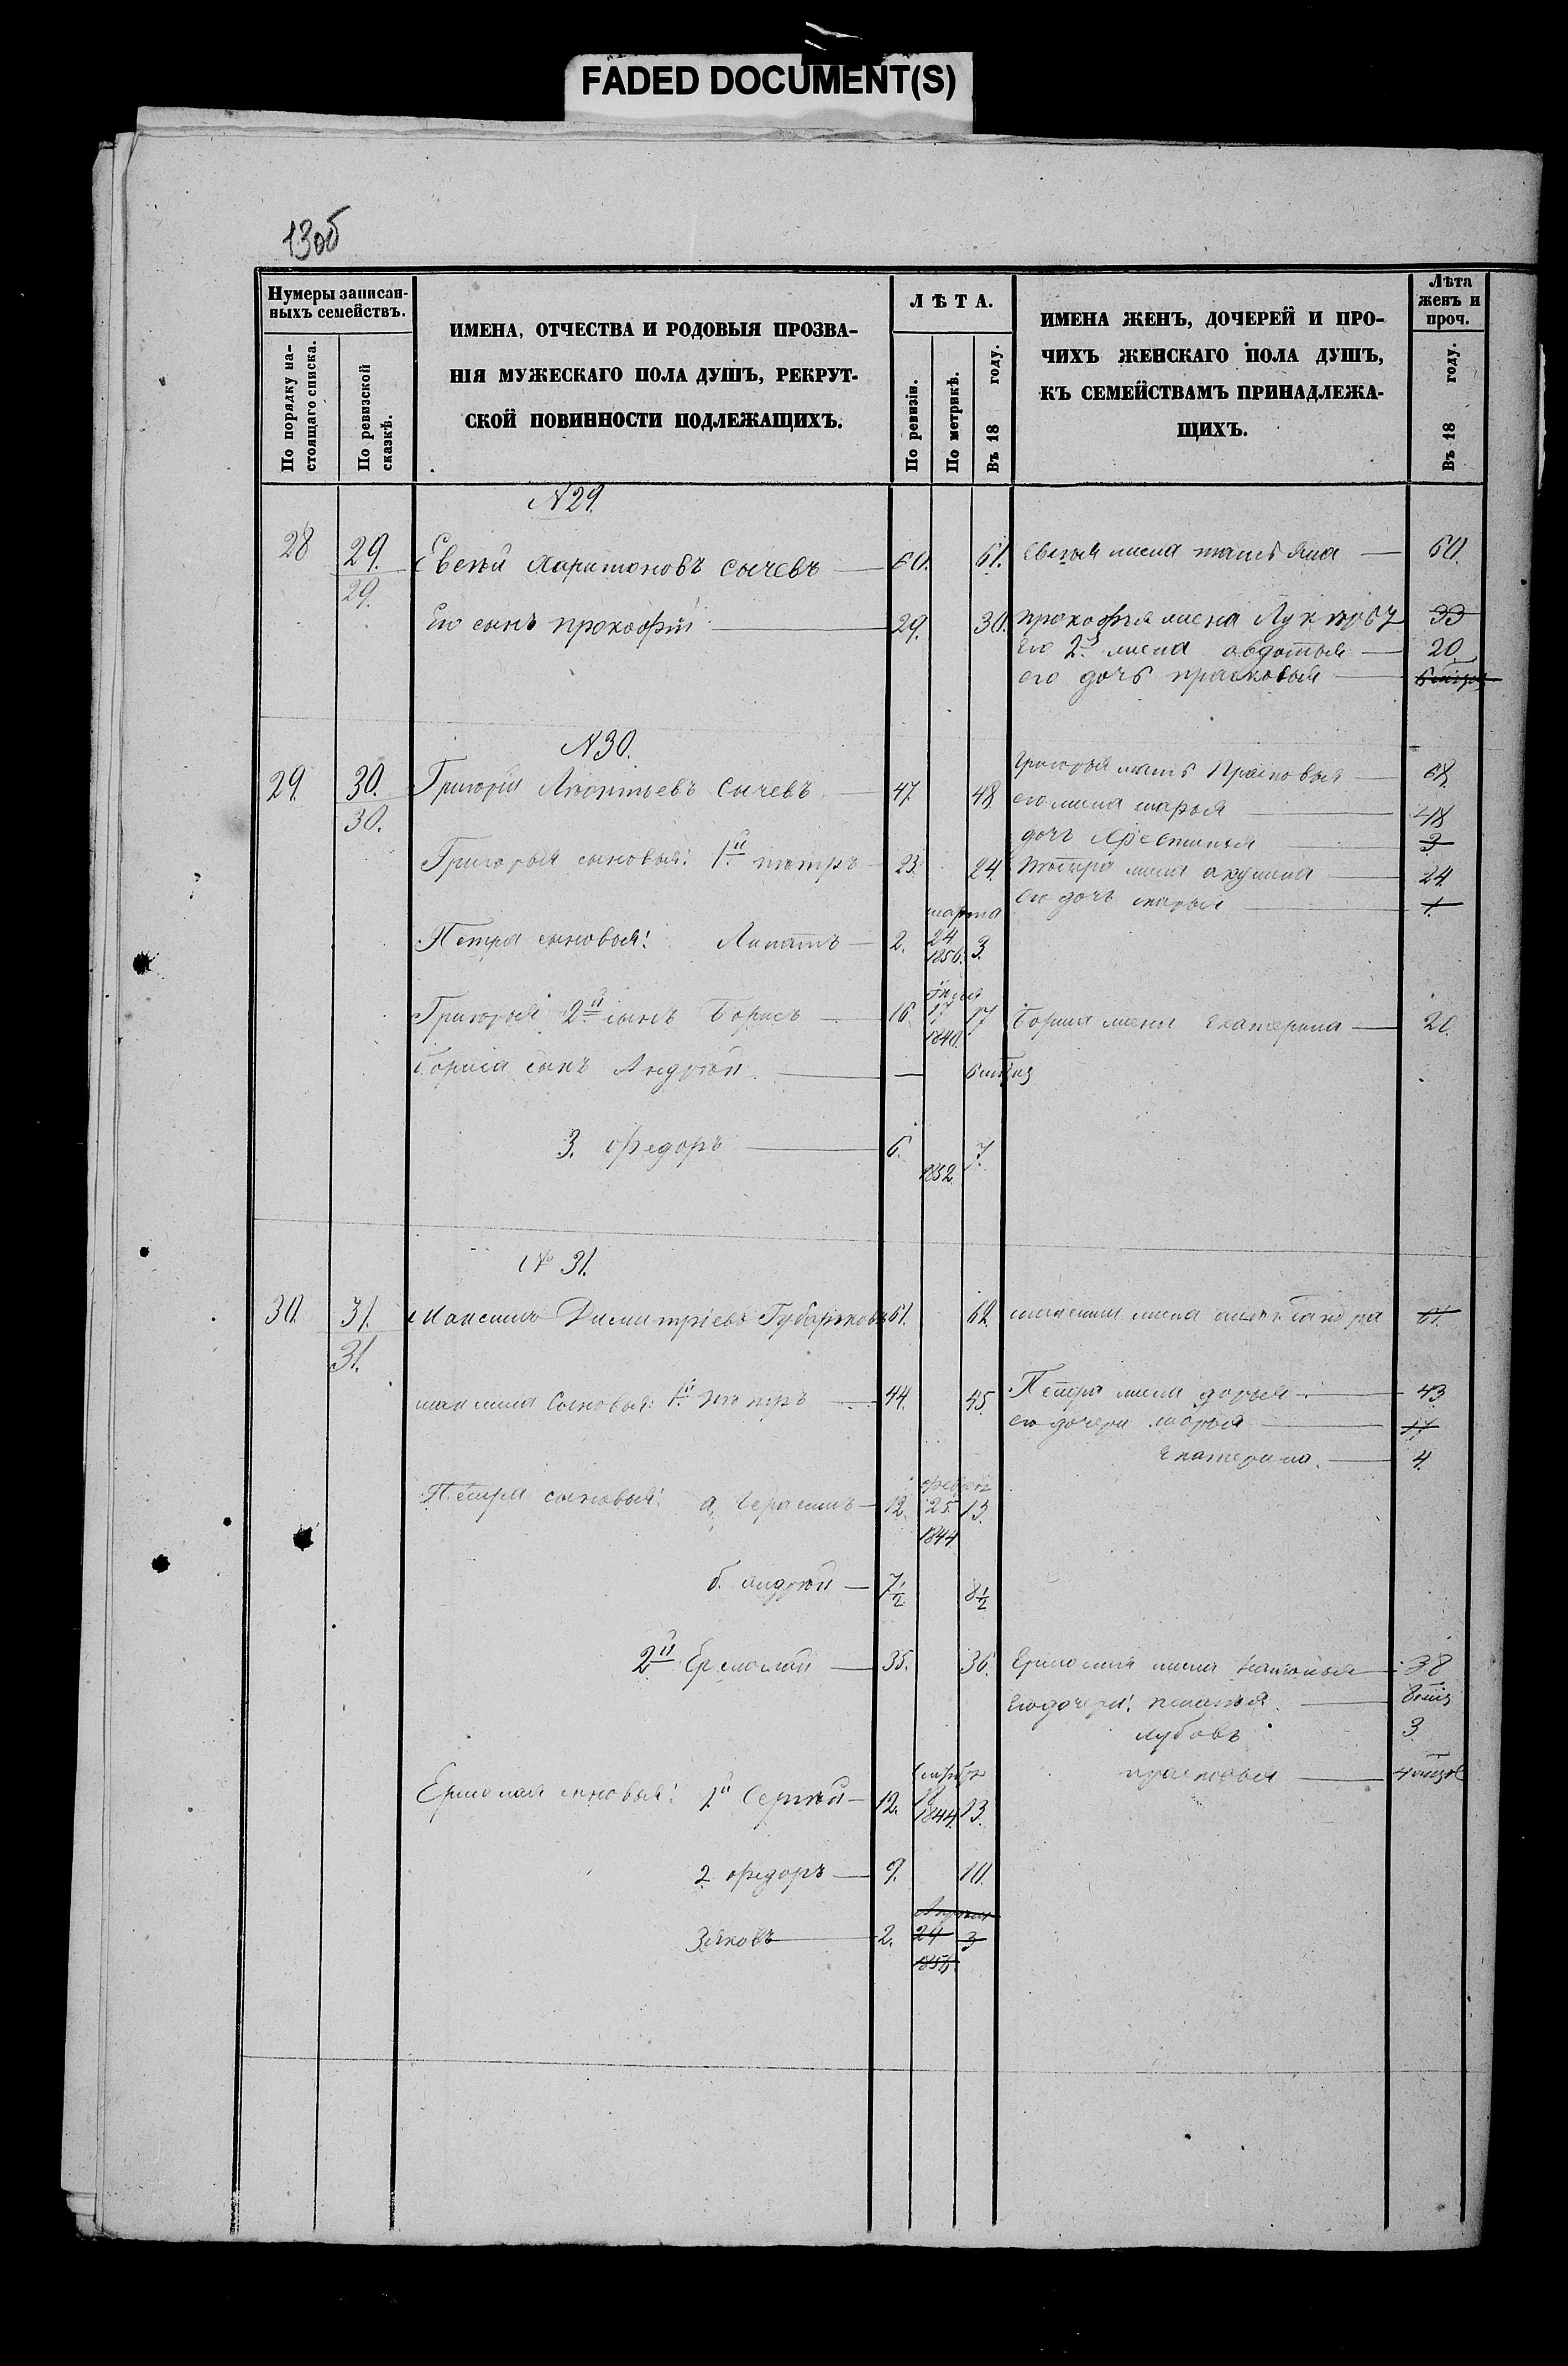 FADED DOCUMENT(S)
13об
Нумеры записан-
ныхъ семействъ.
По порядку на-
стоящаго списка.
По ревизской
сказкѣ.
ИМЕНА, ОТЧЕСТВА И РОДОВЫЯ ПРОЗВА-
НІЯ МУЖЕСКАГО ПОЛА ДУШЪ, РЕКРУТ-
СКОЙ ПОВИННОСТИ ПОДЛЕЖАЩИХЪ.
ЛѢТА.
По ревизіи.
По метрикѣ.
Въ 18 году.
ИМЕНА ЖЕНЪ, ДОЧЕРЕЙ И ПРО-
ЧИХЪ ЖЕНСКАГО ПОЛА ДУШЪ,
КЪ СЕМЕЙСТВАМЪ ПРИНАДЛЕЖА-
ЩИХЪ.
Лѣта
женъ и
проч.
Въ 18 году.
N 29.
28 29. Евсѣй Харитоновъ Сычевъ 60. 61. Евсѣя жена татьяна 60.
29.
Его сынъ прокофій 29. 30. прокофья жена 33
его 2я жена авдотья 20
его дочь прасковья
N 30.
29. 30. Григорій Леонтьевъ Сычевъ 47. 48. Григорья мать Прасковья 68
30. его жена марья 48
дочь 3
Григорья сыновья: 1й петръ 23. 24. петра жена акулина 24.
его дочь марья 1.
Петра сыновья: Липатъ 2. марта 24 1856. 3.
Григорья 2й сынъ Борисъ 16. 17 1840. 17 Бориса жена Екатерина 20.
Бориса сынъ Андрей —
3. федоръ 6. 1852. 7.
N 31.
30. 31. Максимъ Димитріевъ 61. 62. максима жена 61.
31.
максима сыновья: 1й петръ 44. 45. Петра жена дарья 43.
его дочери марья 17.
Екатерина. 4.
Петра сыновья: а, Герасимъ 12. 25. 1844 13.
б. андрей 7 1/2 8 1/2
2й Ермолай 35. 36. Ермолая жена наталья 38
Его дочери: пелагея
любовь 3
прасковья
Ермолая сыновья: 1й Сергѣй 12. 18 1844. 13.
2. федоръ 9. 10.
3. яковъ 2. 29 3